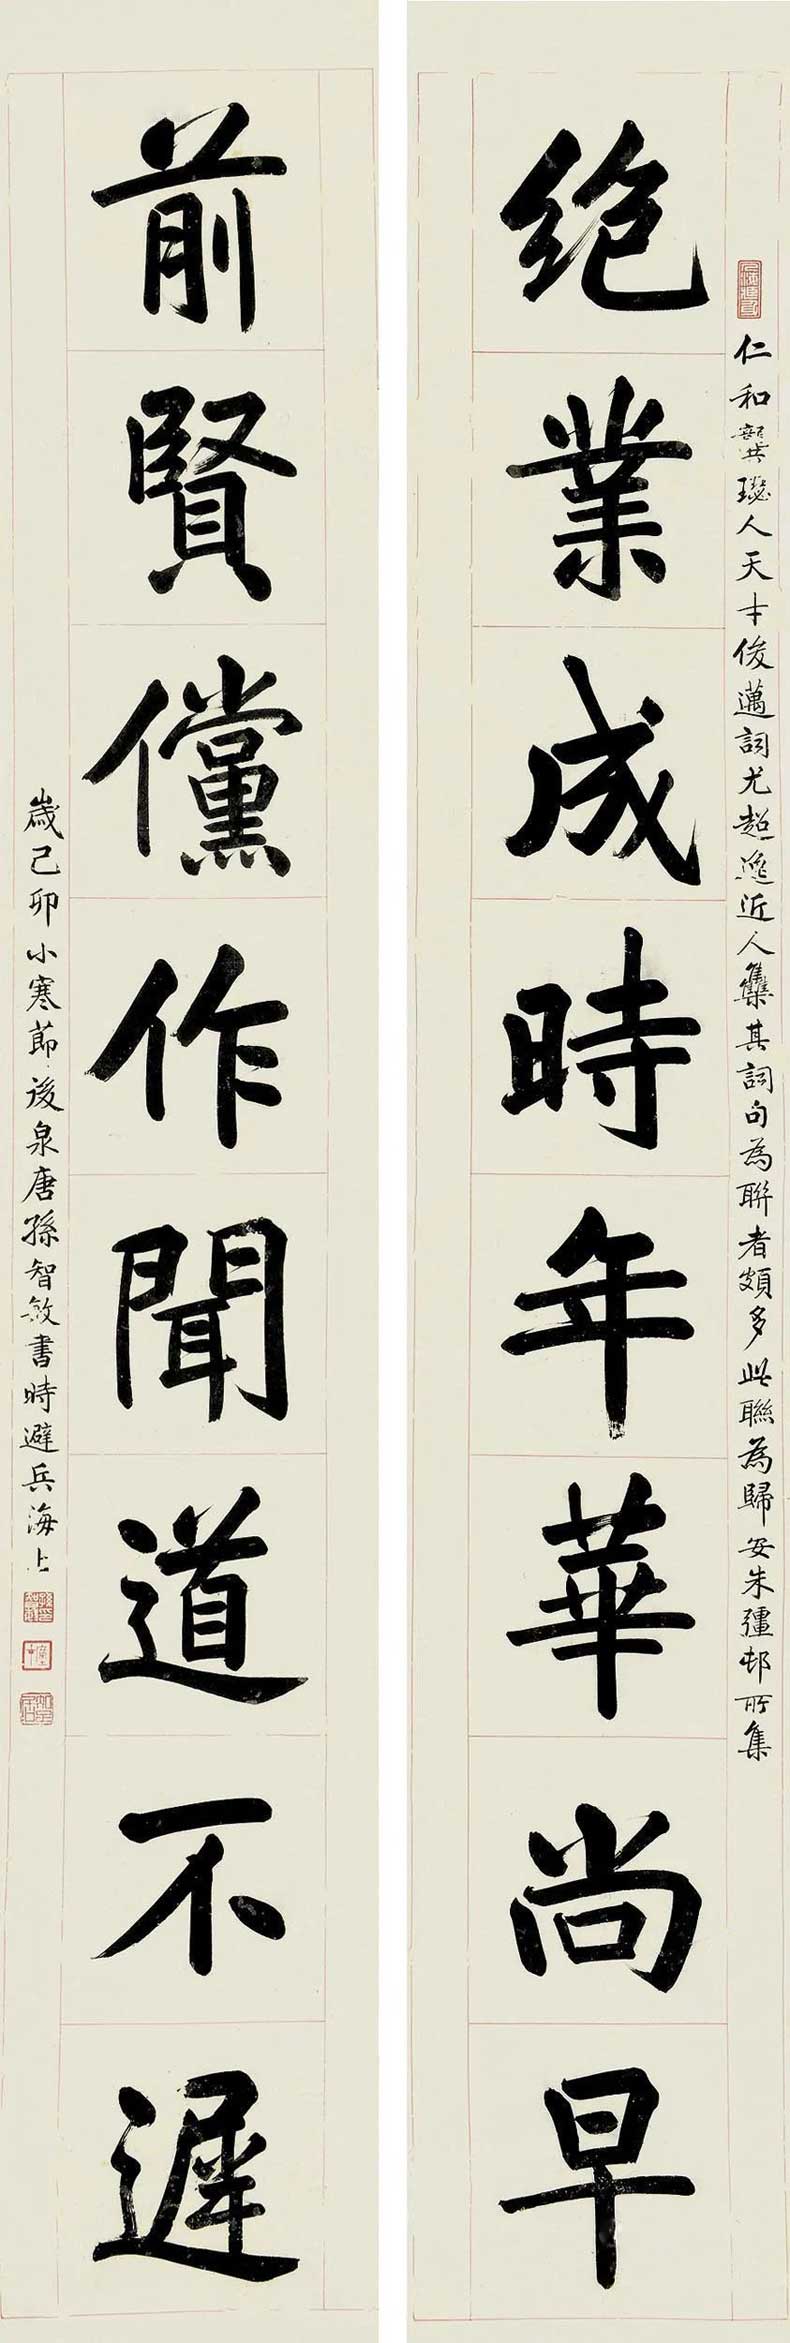 絶業成時年華尚早
仁和龔璱人天才俊邁詞尤超逸近人集其詞句為聯者頗多此聯為歸安朱彊邨所集
前賢儻作聞道不遲
歲己卯小寒節後泉唐孫智敏書時避兵海上